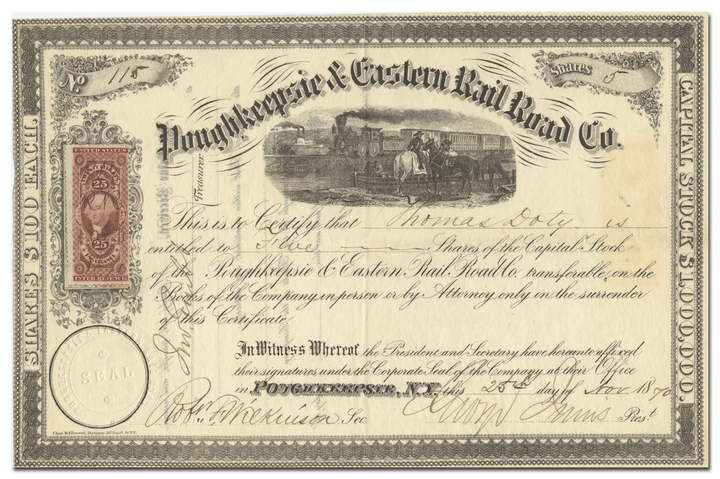 No. 115
Shares 5
Poughkeepsie & Eastern Rail Road Co.
SHARES $100 EACH.
CAPITAL STOCK $1,000,000.
UNITED STATES
25
25
Treasurer
This is to Certify that Thomas Doty is
entitled to Five Shares of the Capital Stock
of the Poughkeepsie & Eastern Rail Road Co. transferable on the
Books of the Company in person or by Attorney only on the surrender
of this Certificate
In Witness Whereof the President and Secretary have hereunto affixed
their signatures under the Corporate Seal of the Company at their Office
in POUGHKEEPSIE, N.Y. this 25th day of Nov 1870
SEAL
Wilkinson Sec. Prest.